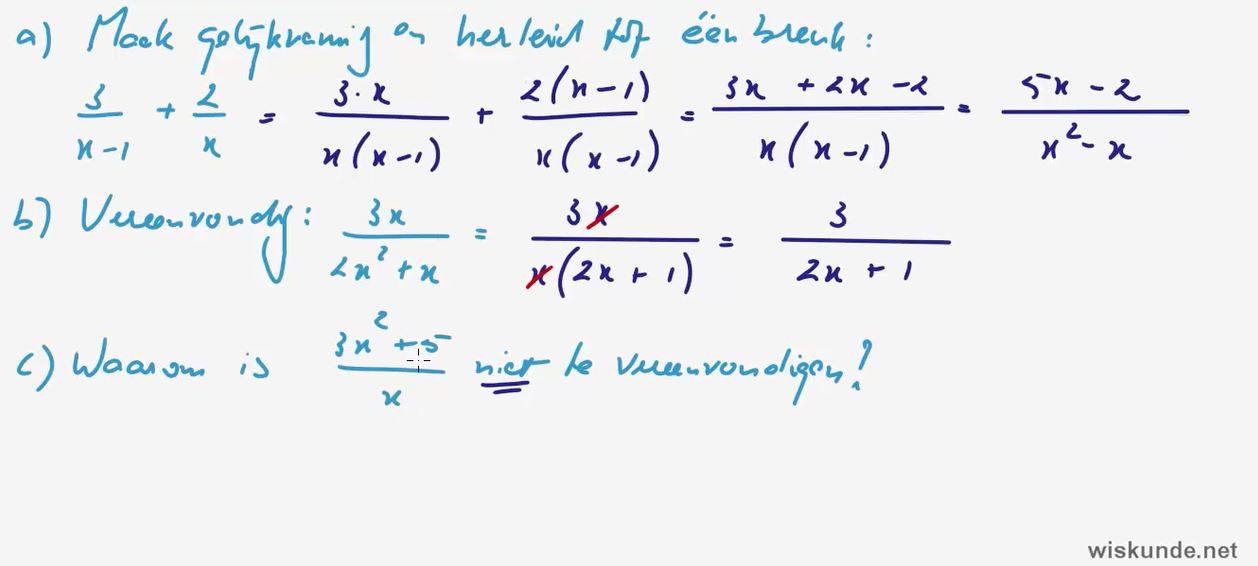 a) Maak gelijknamig en herleid tot één breuk:
3/(x-1) + 2/x = 3·x/(x(x-1)) + 2(x-1)/(x(x-1)) = (3x + 2x - 2)/(x(x-1)) = (5x - 2)/(x² - x)
b) Vereenvoudig: 3x/(2x² + x) = 3x/(x(2x + 1)) = 3/(2x + 1)
c) Waarom is (3x² + 5)/x niet te vereenvoudigen?
wiskunde.net